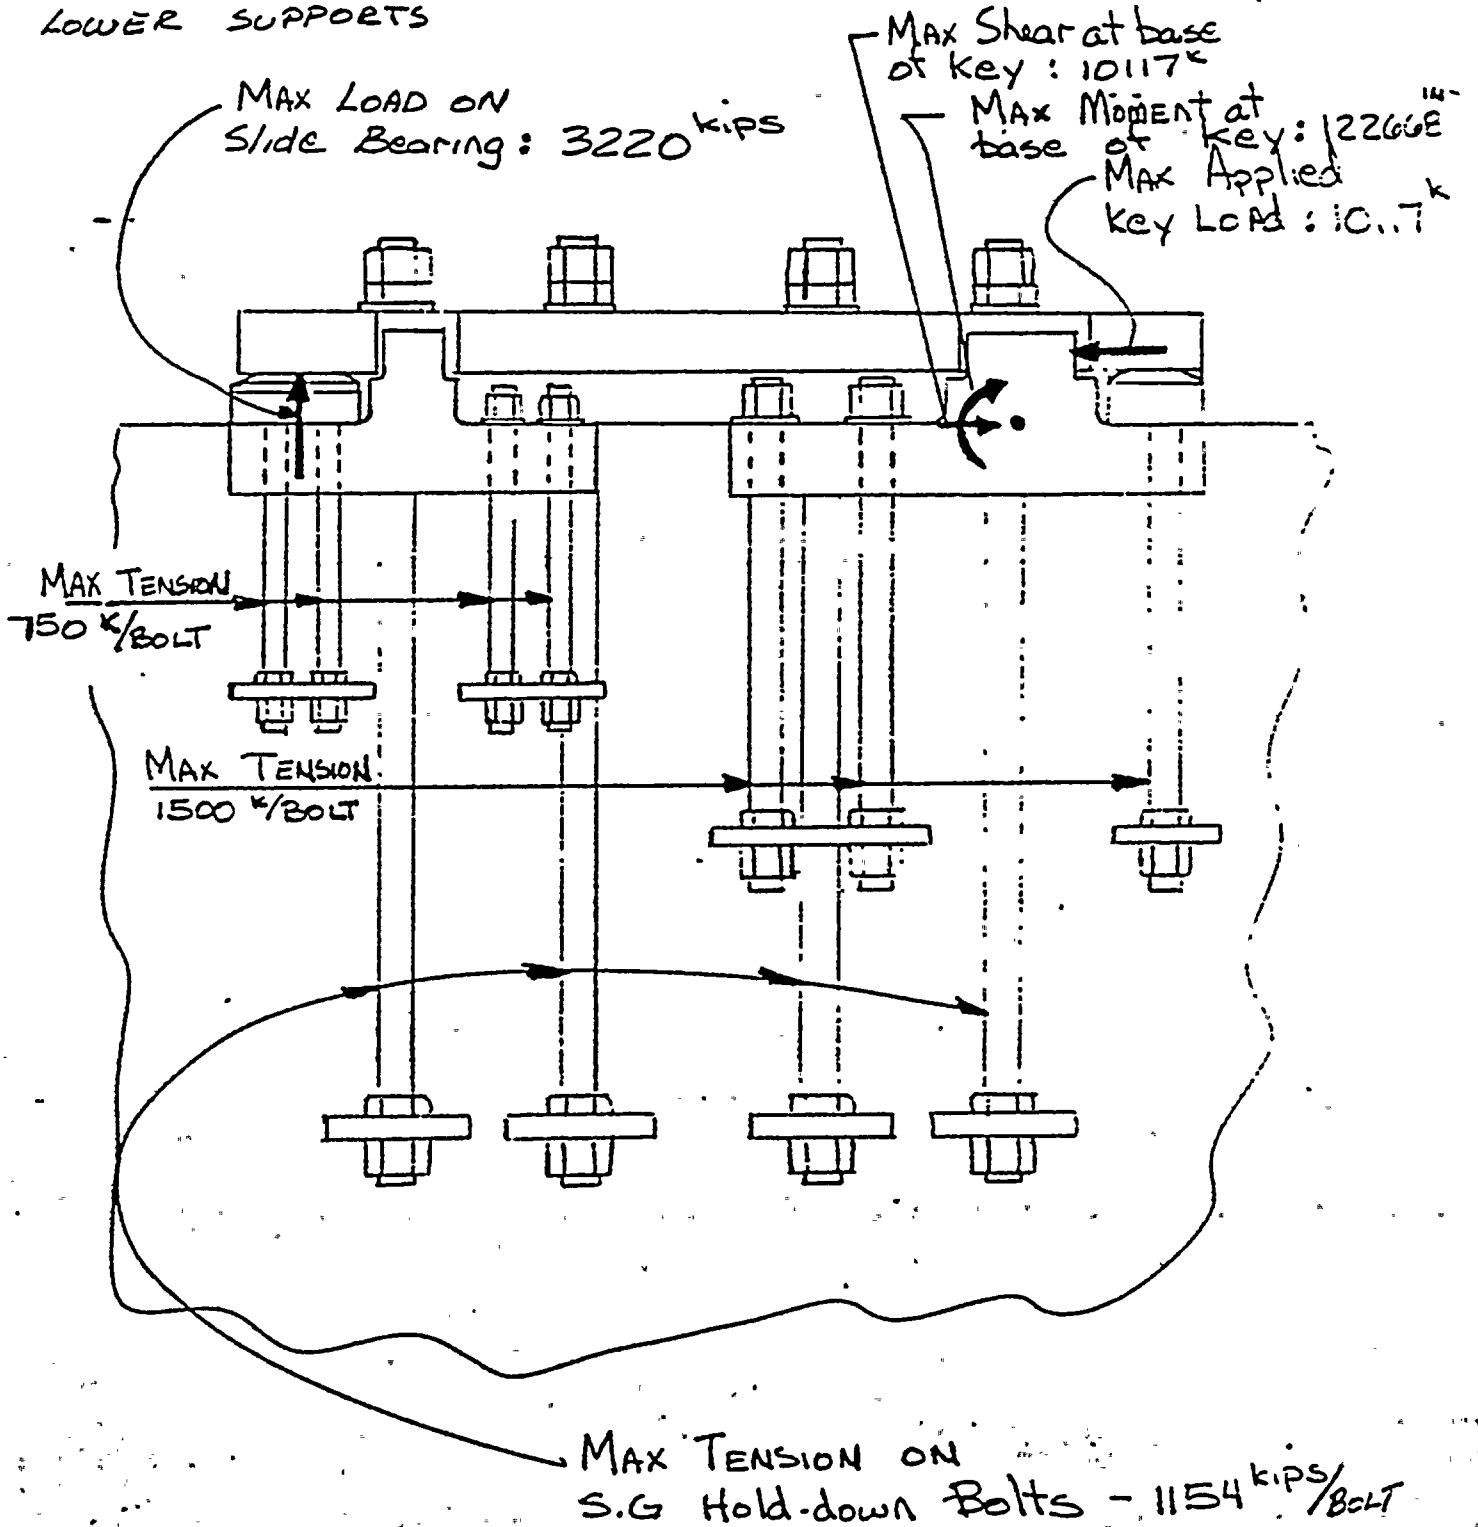 LOWER SUPPORTS
MAX LOAD ON
Slide Bearing: 3220 kips
MAX Shear at base
of key: 10117 k
MAX Moment at
base of key:
MAX Applied
Key LOAD:
MAX TENSION
750 K/BOLT
MAX TENSION
1500 K/BOLT
MAX TENSION ON
S.G Hold-down Bolts - 1154 kips/BOLT